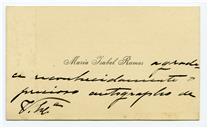 Maria Isabel Ramos agrade
ce reconhecidamente o
precioso autographo de
V. Ex.ª